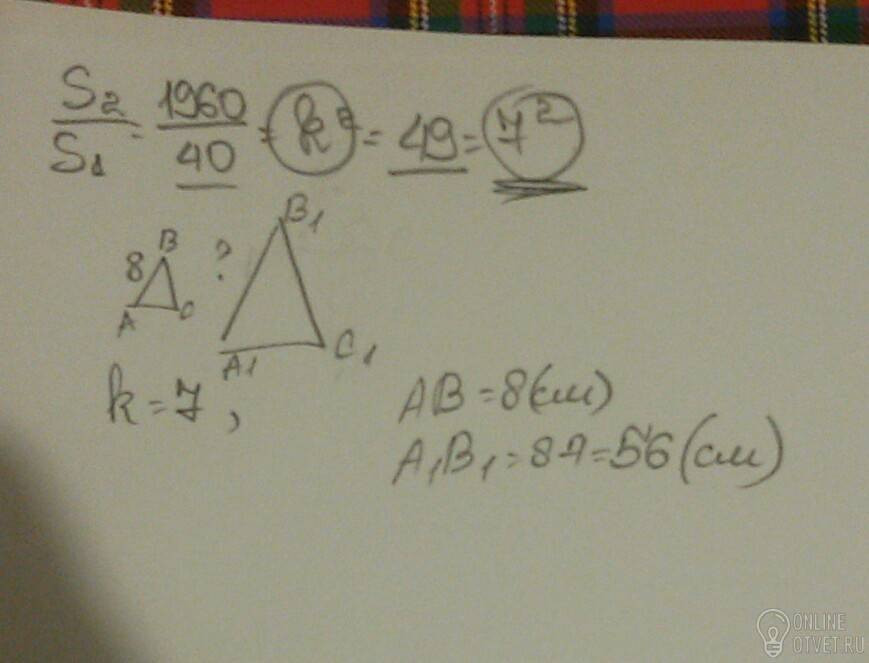 S2/S1 = 1960/40 = k² = 49 = 7²
B1
B
8
?
A
C
A1
C1
k = 7,
AB = 8(см)
A1B1 = 8·7 = 56 (см)
ONLINE
OTVET.RU